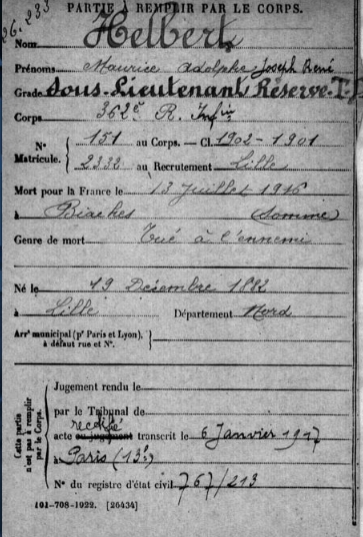 26.233
PARTIE À REMPLIR PAR LE CORPS.
Nom Helbert
Prénoms Maurice Adolphe Joseph René
Grade Sous-Lieutenant Réserve-T-
Corps 362e R. Infie
No 151 au Corps. — Cl. 1902-1901
Matricule. 2338 au Recrutement Lille
Mort pour la France le 13 Juillet 1916
à Biaches (Somme)
Genre de mort Tué à l'ennemi
Né le 19 Décembre 1882
à Lille Département Nord
Arrt municipal (pr Paris et Lyon),
à défaut rue et No.
Cette partie
n'est pas à remplir
par le Corps.
Jugement rendu le
par le Tribunal de
rectifé
acte ou jugement transcrit le 6 Janvier 1917
à Paris (13e)
No du registre d'état civil 767/213
101-708-1922. [26434]